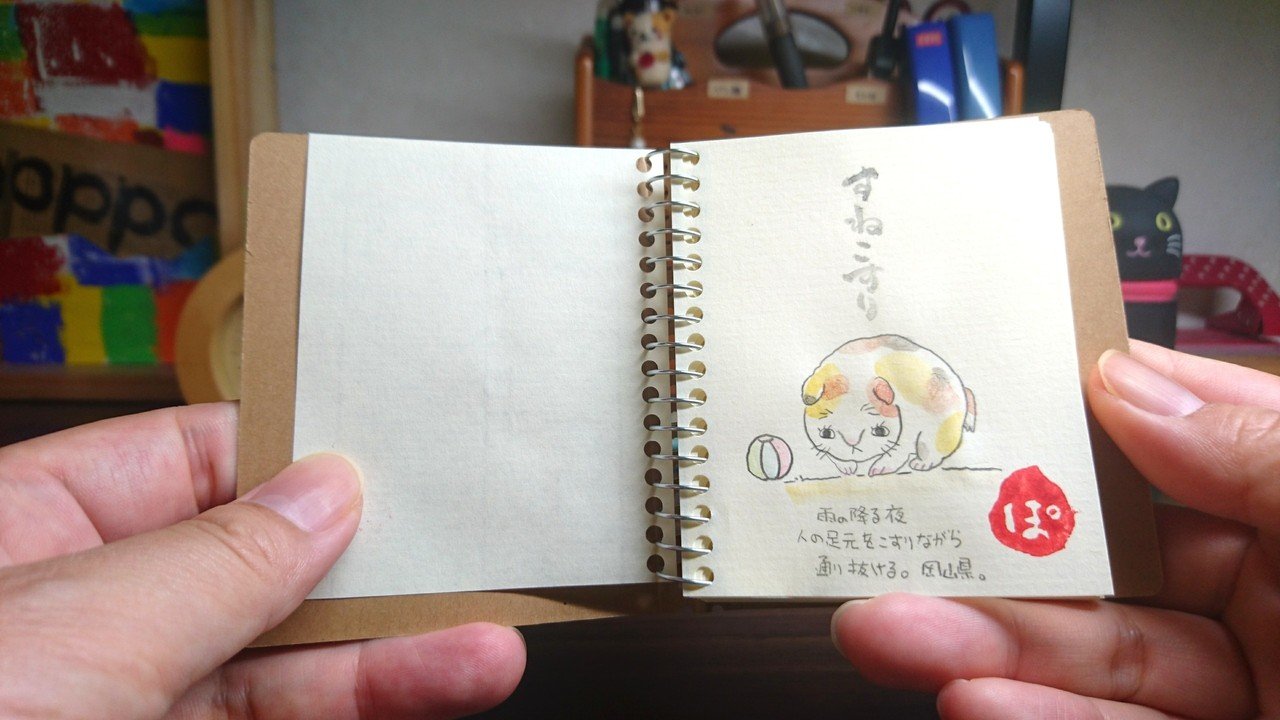 すねこすり
雨の降る夜
人の足元をこすりながら
通り抜ける。岡山県。
ぽ